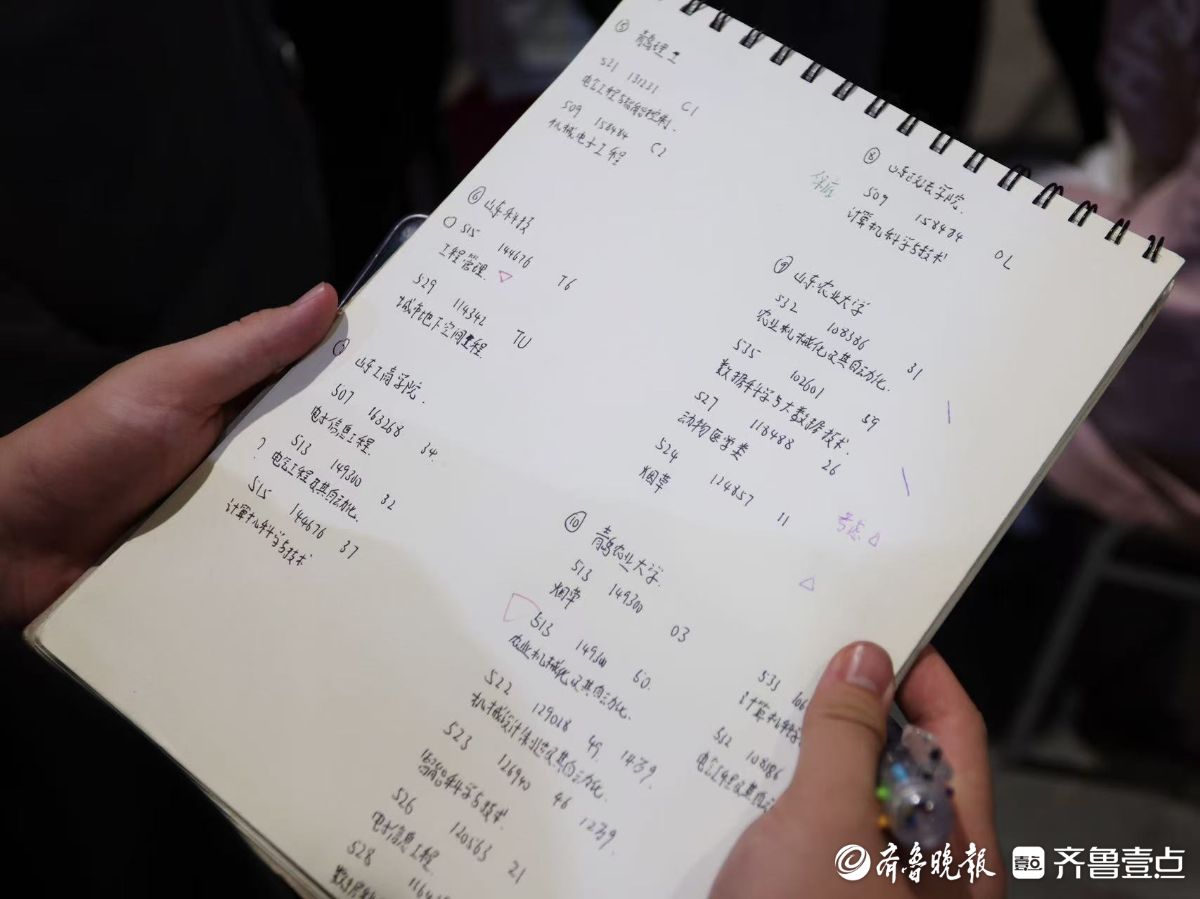 ⑤ 青岛理工
521 131231 C1
电气工程与智能控制.
509 158484 C2
机械电子工程
⑥ 山东科技
515 144676 T6
工程管理.
529 114342 TU
城市地下空间工程
山东工商学院.
507 163268 34.
电子信息工程.
? 513 149300 32
电气工程及其自动化.
515 144676 37
计算机科学与技术
⑧ 山东政法学院.
保底 509 158484 0L
计算机科学与技术
⑨ 山东农业大学
532 108386 31
农业机械化及其自动化.
535 102601 59
数据科学与大数据技术.
527 118488 26
动物医学类
524 124857 11
烟草
考虑 △
⑩ 青岛农业大学.
513 149300 03
烟草
513 149300 60.
农业机械化及其自动化.
522 129018 49. 14万9
机械设计制造及其自动化.
523 126940 46 12万9
智能科学与技术.
526 120563 21
电子信息工程.
528 1164
数据
533 106
计算机科学
532 108386
电气工程及其自动
齐鲁晚报 壹点 齐鲁壹点